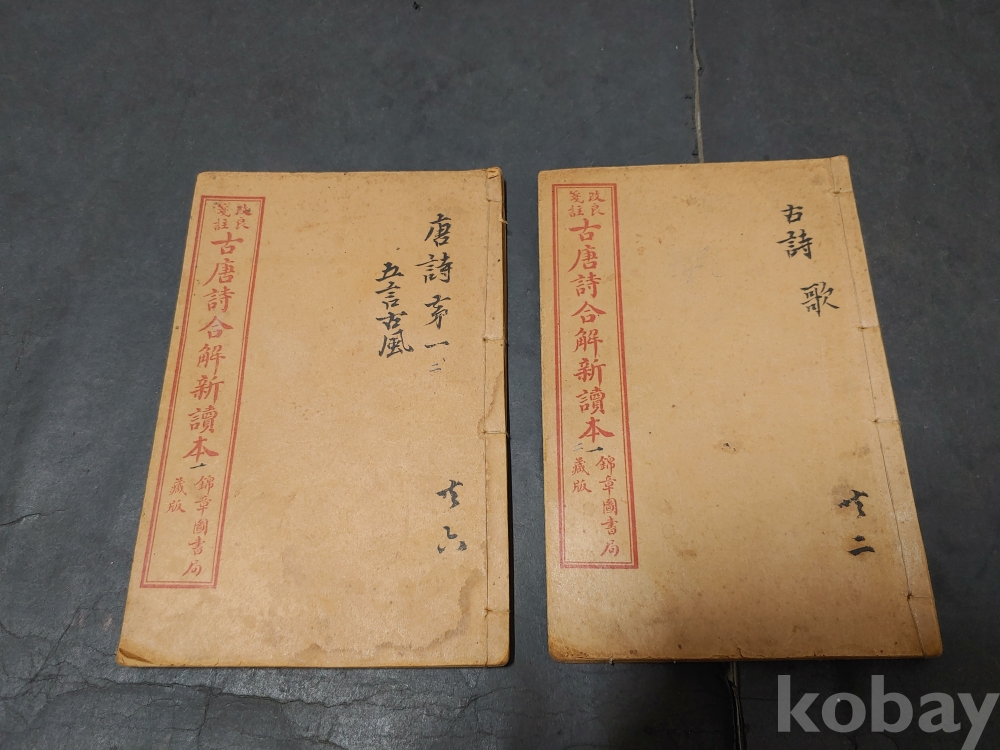 改良
箋註
古唐詩合解新讀本
一
錦章圖書局
藏版
唐詩苐一
二
五言古風
共六
改良
箋註
古唐詩合解新讀本
一
二
錦章圖書局
藏版
古詩
歌
共二
kobay